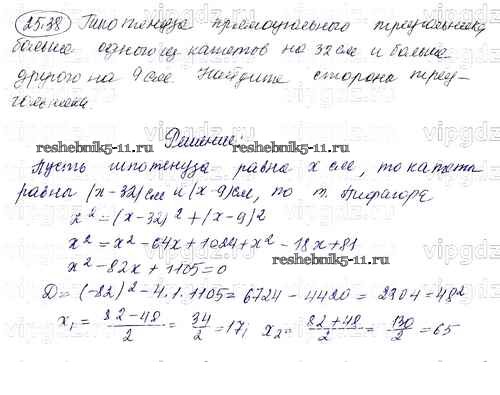 25.38 Гипотенуза прямоугольного треугольника
больше одного из катетов на 32 см и больше
другого на 9 см. Найдите стороны треу-
гольника.
Решение:
reshebnik5-11.ru reshebnik5-11.ru
Пусть гипотенуза равна x см, то катеты
равны (x-32) см и (x-9) см, по т. Пифагора
x² = (x-32)² + (x-9)²
x² = x² - 64x + 1024 + x² - 18x + 81
reshebnik5-11.ru reshebnik5-11.ru
x² - 82x + 1105 = 0
D = (-82)² - 4·1·1105 = 6724 - 4420 = 2304 = 48²
x₁ = 82-48/2 = 34/2 = 17; x₂ = 82+48/2 = 130/2 = 65
vipgdz